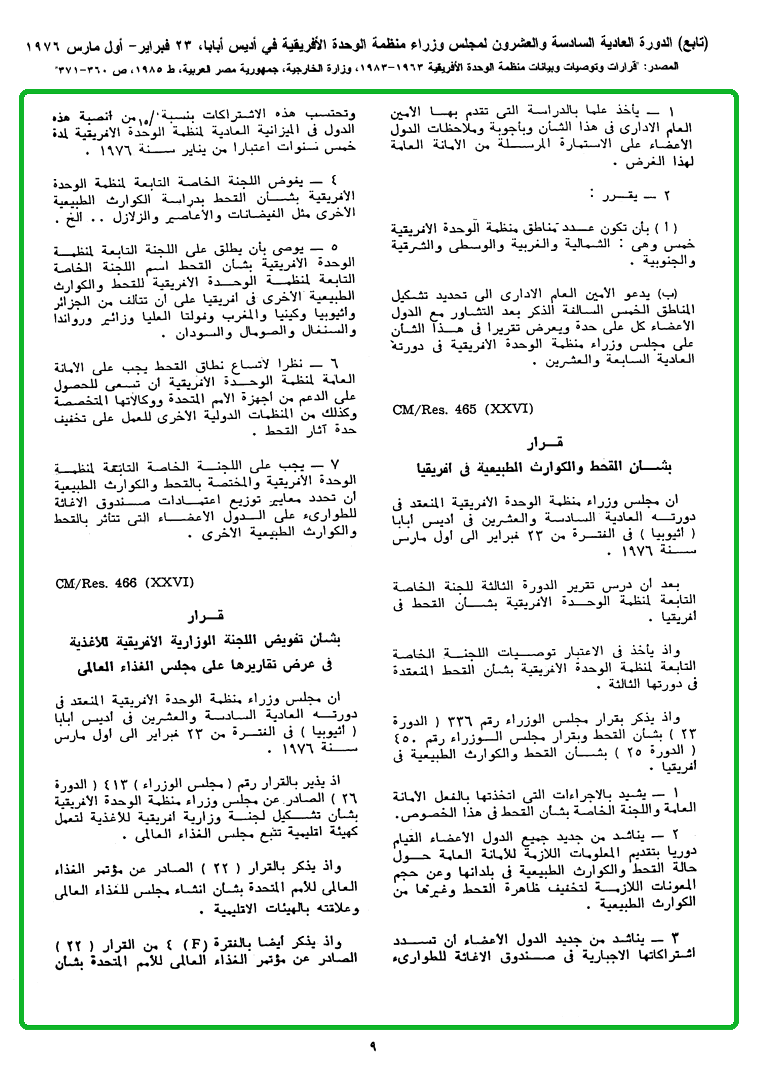 (تابع) الدورة العادية السادسة والعشرون لمجلس وزراء منظمة الوحدة الأفريقية في أديس أبابا، ٢٣ فبراير- أول مارس ١٩٧٦
المصدر: "قرارات وتوصيات وبيانات منظمة الوحدة الأفريقية ١٩٦٣-١٩٨٣، وزارة الخارجية، جمهورية مصر العربية، ط ١٩٨٥، ص ٣٦٠-٣٧١"
١ — يأخذ علما بالدراسة التى تقدم بها الأمين
العام الادارى فى هذا الشأن وبأجوبة وملاحظات الدول
الأعضاء على الاستمارة المرسلة من الأمانة العامة
لهذا الغرض .
٢ — يقرر :
( أ ) بأن تكون عدد مناطق منظمة الوحدة الأفريقية
خمس وهى : الشمالية والغربية والوسطى والشرقية
والجنوبية .
(ب) يدعو الأمين العام الادارى الى تحديد تشكيل
المناطق الخمس السالفة الذكر بعد التشاور مع الدول
الأعضاء كل على حدة ويعرض تقريرا فى هذا الشأن
على مجلس وزراء منظمة الوحدة الأفريقية فى دورته
العادية السابعة والعشرين .
CM/Res. 465 (XXVI)
قرار
بشأن القحط والكوارث الطبيعية فى أفريقيا
ان مجلس وزراء منظمة الوحدة الأفريقية المنعقد فى
دورته العادية السادسة والعشرين فى اديس أبابا
( أثيوبيا ) فى الفترة من ٢٣ فبراير الى اول مارس
سنة ١٩٧٦ .
بعد أن درس تقرير الدورة الثالثة للجنة الخاصة
التابعة لمنظمة الوحدة الأفريقية بشأن القحط فى
أفريقيا .
واذ يأخذ فى الاعتبار توصيات اللجنة الخاصة
التابعة لمنظمة الوحدة الأفريقية بشأن القحط المنعقدة
فى دورتها الثالثة .
واذ يذكر بقرار مجلس الوزراء رقم ٣٣٦ ( الدورة
٢٣ ) بشأن القحط وبقرار مجلس الوزراء رقم ٤٥٠
( الدورة ٢٥ ) بشأن القحط والكوارث الطبيعية فى
أفريقيا .
١ — يشيد بالاجراءات التى اتخذتها بالفعل الأمانة
العامة واللجنة الخاصة بشأن القحط فى هذا الخصوص.
٢ — يناشد من جديد جميع الدول الأعضاء القيام
دوريا بتقديم المعلومات اللازمة للأمانة العامة حول
حالة القحط والكوارث الطبيعية فى بلدانها وعن حجم
المعونات اللازمة لتخفيف ظاهرة القحط وغيرها من
الكوارث الطبيعية .
٣ — يناشد من جديد الدول الأعضاء ان تسدد
اشتراكاتها الاجبارية فى صندوق الاغاثة للطوارىء
وتحتسب هذه الاشتراكات بنسبة ١٠٪ من أنصبة هذه
الدول فى الميزانية العادية لمنظمة الوحدة الأفريقية لمدة
خمس سنوات اعتبارا من يناير سنة ١٩٧٦ .
٤ — يفوض اللجنة الخاصة التابعة لمنظمة الوحدة
الأفريقية بشأن القحط بدراسة الكوارث الطبيعية
الأخرى مثل الفيضانات والأعاصير والزلازل .. الخ .
٥ — يوصى بأن يطلق على اللجنة التابعة لمنظمة
الوحدة الأفريقية بشأن القحط اسم اللجنة الخاصة
التابعة لمنظمة الوحدة الأفريقية للقحط والكوارث
الطبيعية الأخرى فى افريقيا على أن تتألف من الجزائر
واثيوبيا وكينيا والمغرب وفولتا العليا وزائير ورواندا
والسنغال والصومال والسودان .
٦ — نظرا لاتساع نطاق القحط يجب على الأمانة
العامة لمنظمة الوحدة الأفريقية ان تسعى للحصول
على الدعم من أجهزة الأمم المتحدة ووكالاتها المتخصصة
وكذلك من المنظمات الدولية الأخرى للعمل على تخفيف
حدة آثار القحط .
٧ — يجب على اللجنة الخاصة التابعة لمنظمة
الوحدة الأفريقية والمختصة بالقحط والكوارث الطبيعية
أن تحدد معايير توزيع اعتمادات صندوق الاغاثة
للطوارىء على الدول الأعضاء التى تتأثر بالقحط
والكوارث الطبيعية الأخرى .
CM/Res. 466 (XXVI)
قرار
بشأن تفويض اللجنة الوزارية الأفريقية للأغذية
فى عرض تقاريرها على مجلس الغذاء العالمى
ان مجلس وزراء منظمة الوحدة الأفريقية المنعقد فى
دورته العادية السادسة والعشرين فى أديس أبابا
( أثيوبيا ) فى الفترة من ٢٣ فبراير الى اول مارس
سنة ١٩٧٦ .
اذ يذير بالقرار رقم ( مجلس الوزراء ) ٤١٣ ( الدورة
٢٦ ) الصادر عن مجلس وزراء منظمة الوحدة الأفريقية
بشأن تشكيل لجنة وزارية افريقية للأغذية لتعمل
كهيئة اقليمية تتبع مجلس الغذاء العالمى .
واذ يذكر بالقرار ( ٢٢ ) الصادر عن مؤتمر الغذاء
العالمى للأمم المتحدة بشأن انشاء مجلس للغذاء العالمى
وعلاقته بالهيئات الاقليمية .
واذ يذكر أيضا بالفترة (F) ٤ من القرار ( ٢٢ )
الصادر عن مؤتمر الغذاء العالمى للأمم المتحدة بشأن
٩